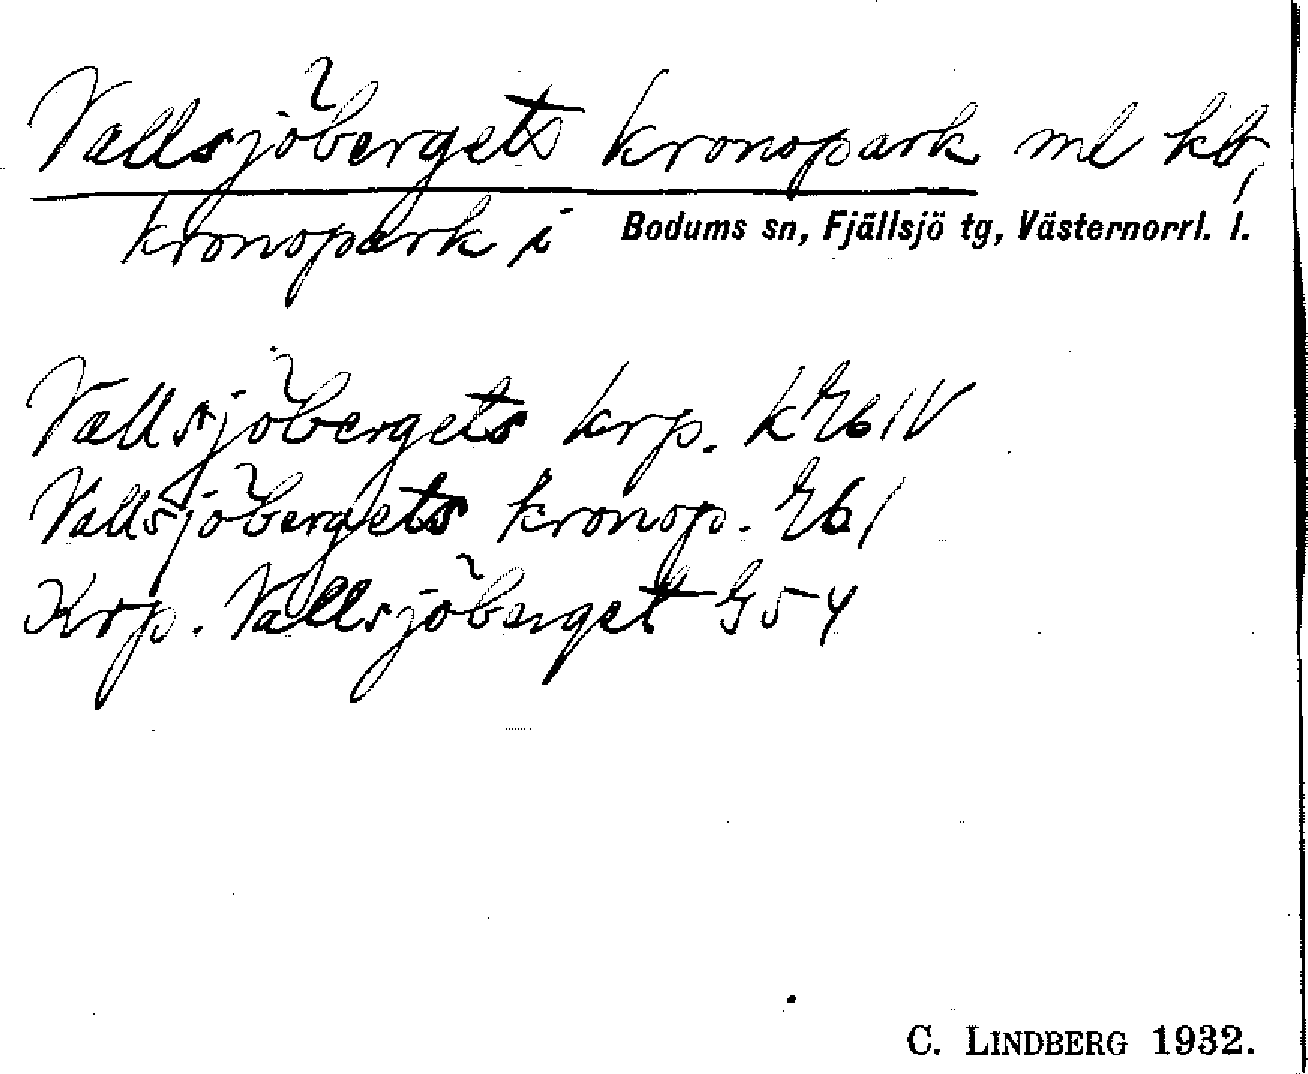 Vallsjöbergets kronopark ml kb,
kronopark i Bodums sn, Fjällsjö tg, Västernorrl. l.
Vallsjöbergets krp.
Vallsjöbergets kronop.
Krp. Vallsjöberget G54
C. LINDBERG 1932.